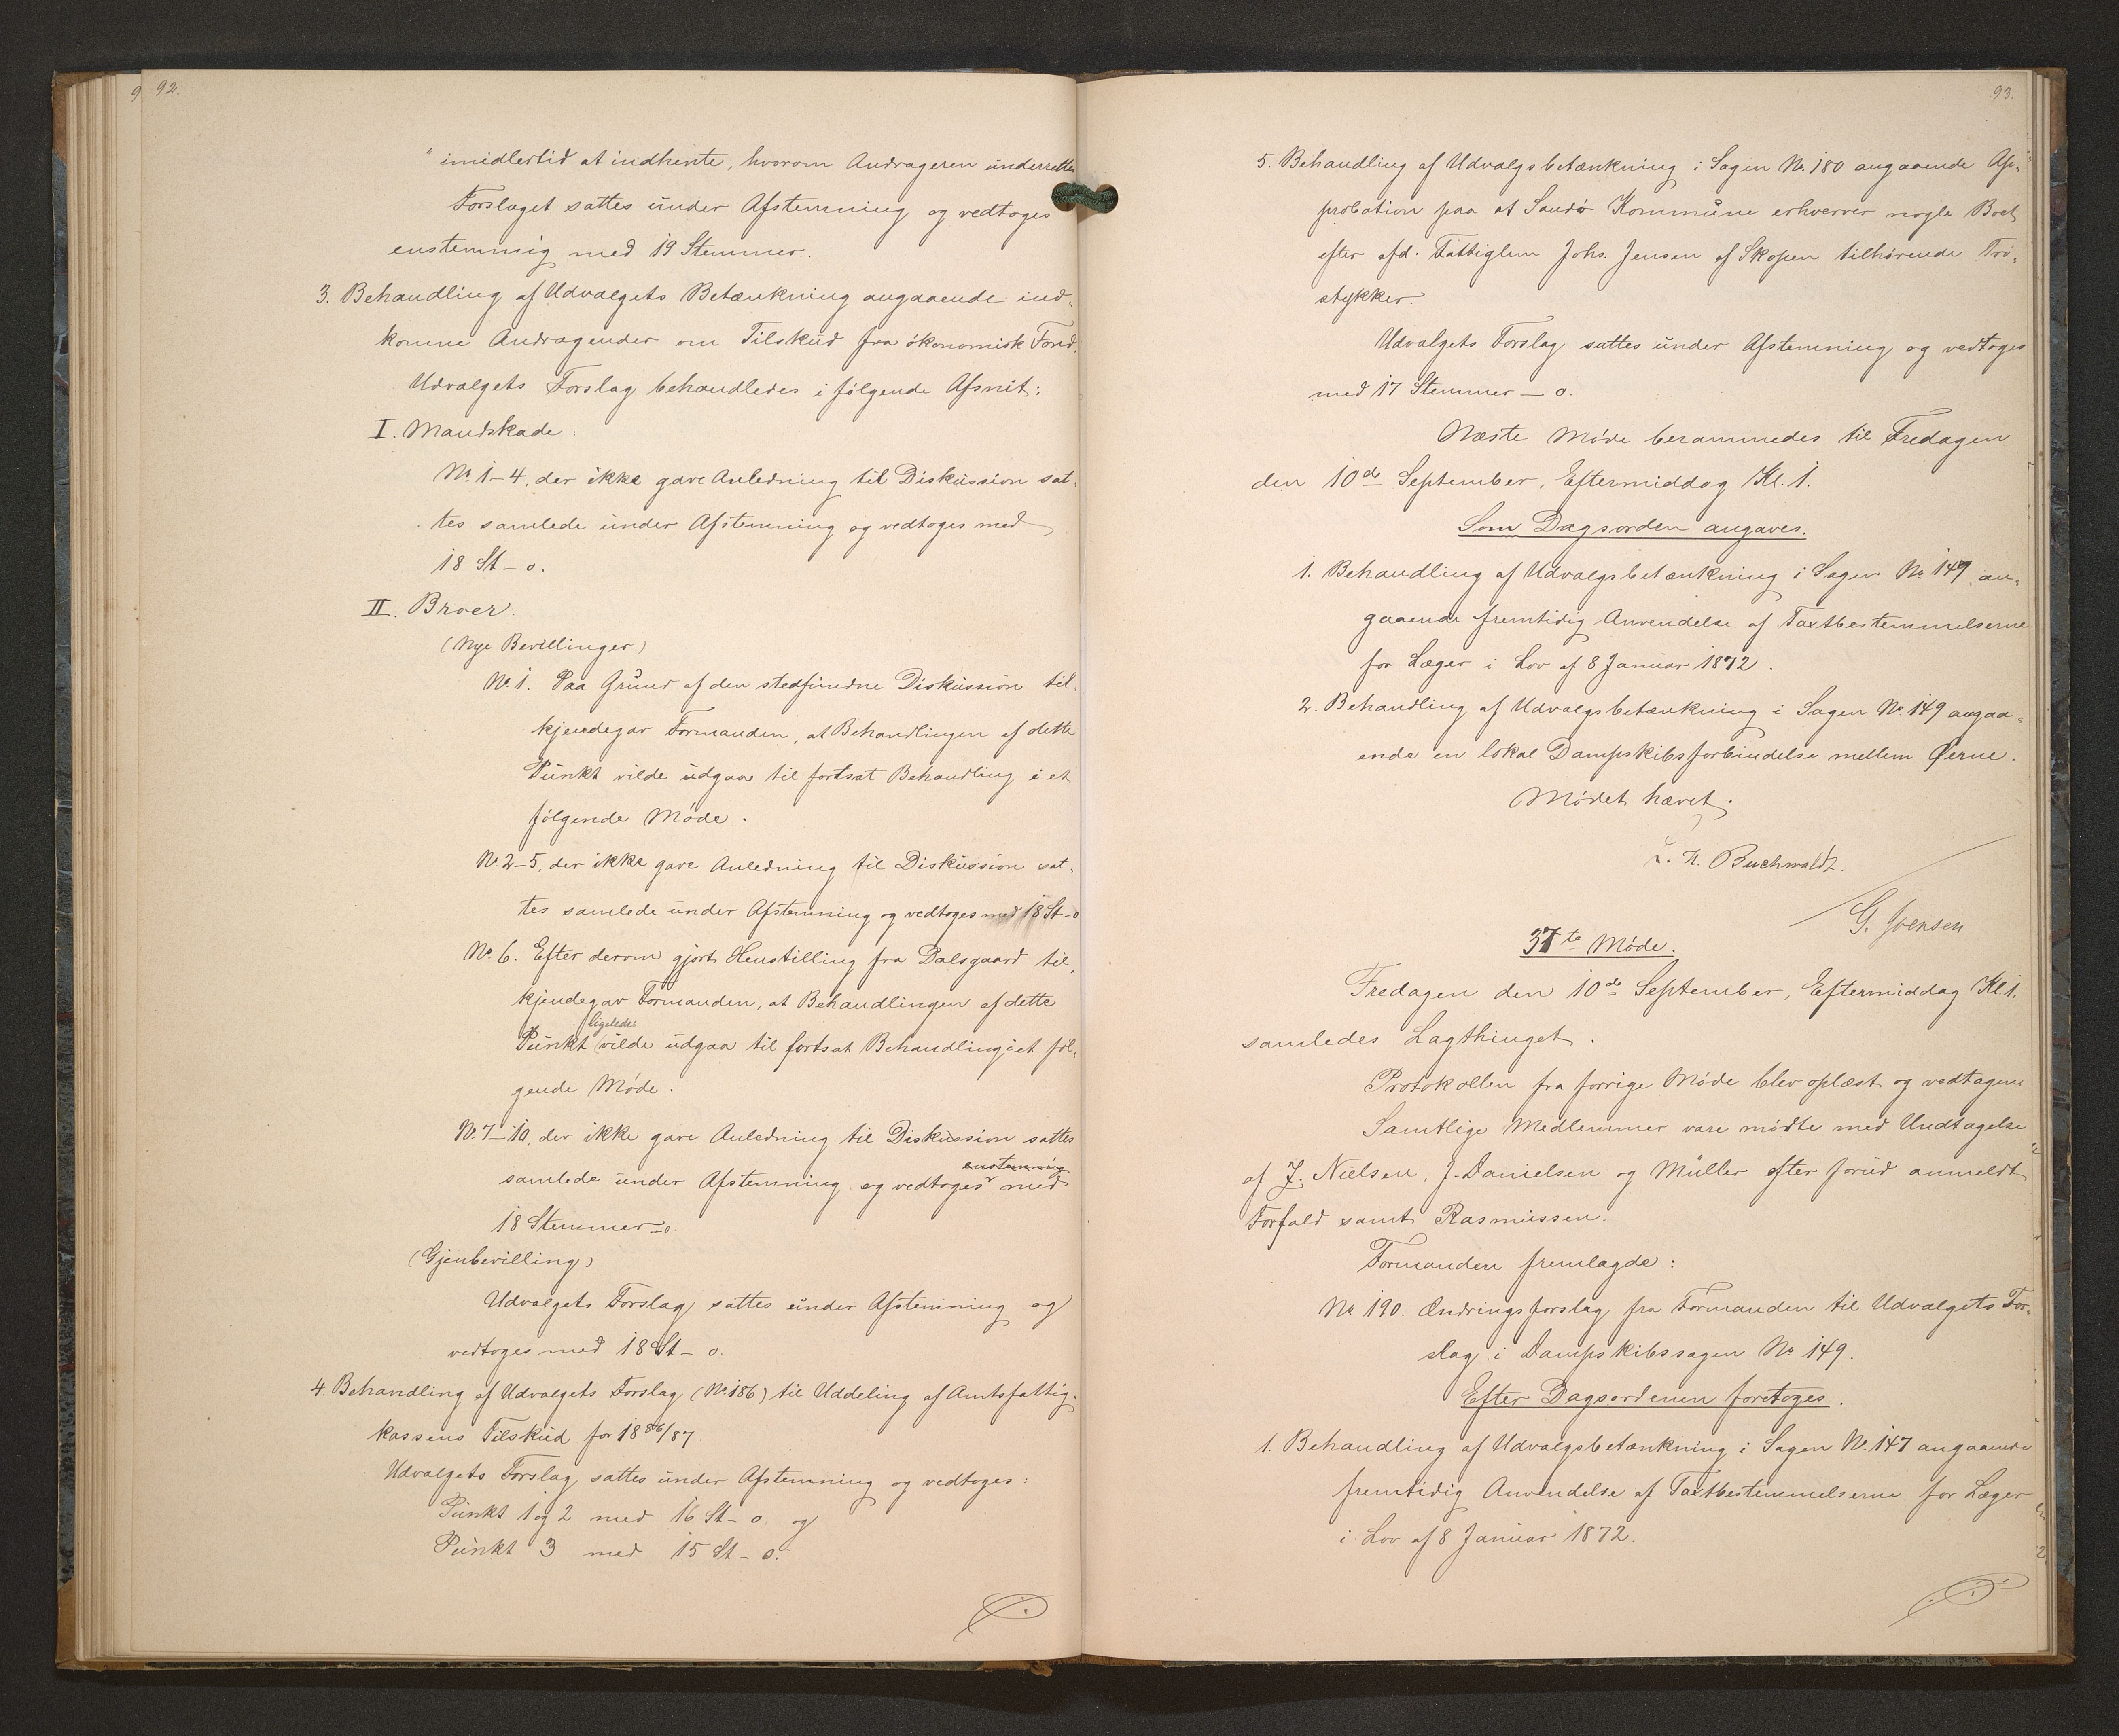 92.
imidlertid at indhente, hvorom Andrageren underrettes
Forslaget sattes under Afstemning og vedtoges
enstemmig med 19 Stemmer.
3. Behandling af Udvalgets Betænkning angaaende ind-
komne Andragender om Tilskud fra økonomisk Fond.
Udvalgets Forslag behandledes i følgende Afsnit:
I. Mandskade:
No. 1-4, der ikke gave Anledning til Diskussion sat-
tes samlede under Afstemning og vedtoges med
18 St - o.
II. Broer.
(Nye Bevillinger.)
No. 1. Paa Grund af den stedfundne Diskussion til-
kjendegav Formanden, at Behandlingen af dette
Punkt vilde udgaa til fortsat Behandling i et
følgende Møde.
No. 2-5, der ikke gave Anledning til Diskussion sat-
tes samlede under Afstemning og vedtoges med 18 St - o
No. 6. Efter derom gjort Henstilling fra Dalsgaard til-
kjendegav Formanden, at Behandlingen af dette
ligeledes
Punkt vilde udgaa til fortsat Behandling i et føl-
gende Møde.
No. 7-10, der ikke gave Anledning til Diskussion sattes
enstemmig
samlede under Afstemning og vedtoges med
18 Stemmer - o.
(Gjenbevilling)
Udvalgets Forslag sattes under Afstemning og
vedtoges med 18 St - o.
4. Behandling af Udvalgets Forslag (No. 186) til Uddeling af Amtsfattig-
kassens Tilskud for 1886/87.
Udvalgets Forslag sattes under Afstemning og vedtoges:
Punkt 1 og 2 med 16 St - o. og
Punkt 3 med 15 St - o.
93.
5. Behandling af Udvalgsbetænkning i Sagen No. 180 angaaende Ap-
probation paa at Sandø Kommune erhverver nogle Boet
efter afd. Fattiglem Johs. Jensen af Skopen tilhørende Trø-
stykker.
Udvalgets Forslag sattes under Afstemning og vedtoges
med 17 Stemmer - o.
Næste Møde berammedes til Fredagen
den 10de September, Eftermiddag Kl. 1.
Som Dagsorden angaves.
1. Behandling af Udvalgsbetænkning i Sagen No. 149 an-
gaaende fremtidig Anvendelse af Taxtbestemmelserne
for Læger i Lov af 8 Januar 1872.
2. Behandling af Udvalgsbetænkning i Sagen No. 149 angaa-
ende en lokal Dampskibsforbindelse mellem Øerne.
Mødet hævet.
Buchwaldt.
G. Joensen
37te Møde.
Fredagen den 10de September, Eftermiddag Kl. 1.
samledes Lagthinget.
Protokollen fra forrige Møde blev oplæst og vedtagen
Samtlige Medlemmer vare mødte med Undtagelse
af J. Nielsen, J. Danielsen og Müller efter forud anmeldt
Forfald samt Rasmussen.
Formanden fremlagde:
No. 190. Ændringsforslag fra Formanden til Udvalgets For-
slag i Dampskibssagen No. 149.
Efter Dagsordenen foretoges.
1. Behandling af Udvalgsbetænkning i Sagen No. 147 angaaende
fremtidig Anvendelse af Taxtbestemmelserne for Læger
i Lov af 8 Januar 1872.